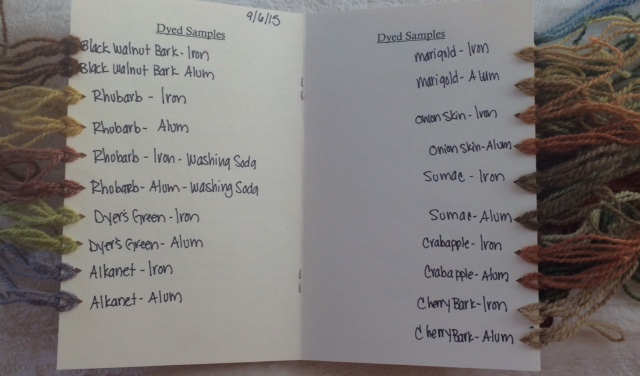 9/6/15
Dyed Samples
Black Walnut Bark - Iron
Black Walnut Bark Alum
Rhubarb - Iron
Rhubarb - Alum
Rhubarb - Iron - Washing Soda
Rhubarb - Alum - Washing Soda
Dyer's Green - Iron
Dyer's Green - Alum
Alkanet - Iron
Alkanet - Alum
Dyed Samples
marigold - Iron
marigold - Alum
Onion Skin - Iron
Onion Skin - Alum
Sumac - Iron
Sumac - Alum
Crabapple - Iron
Crabapple - Alum
Cherry Bark - Iron
Cherry Bark - Alum